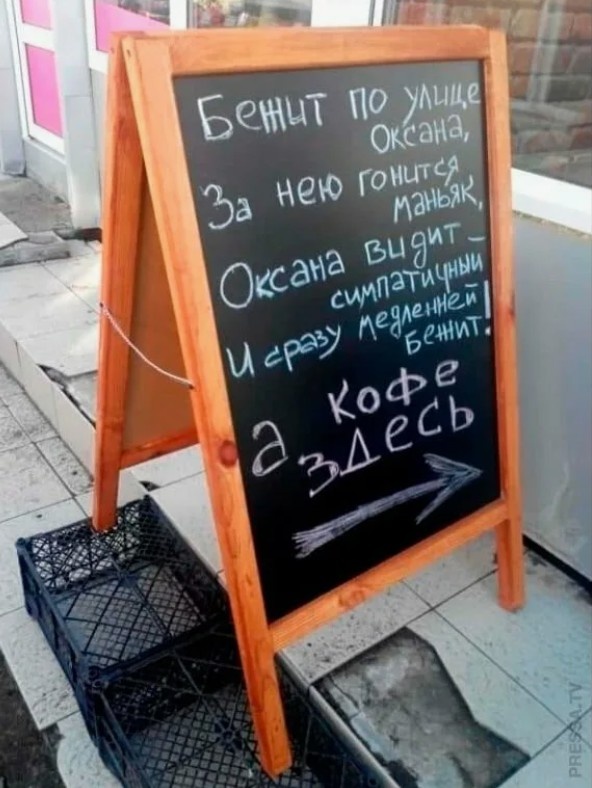 Бежит по улице
Оксана,
За нею гонится
маньяк,
Оксана видит –
симпатичный
И сразу медленней
бежит!
а кофе
здесь
PRESSA.TV